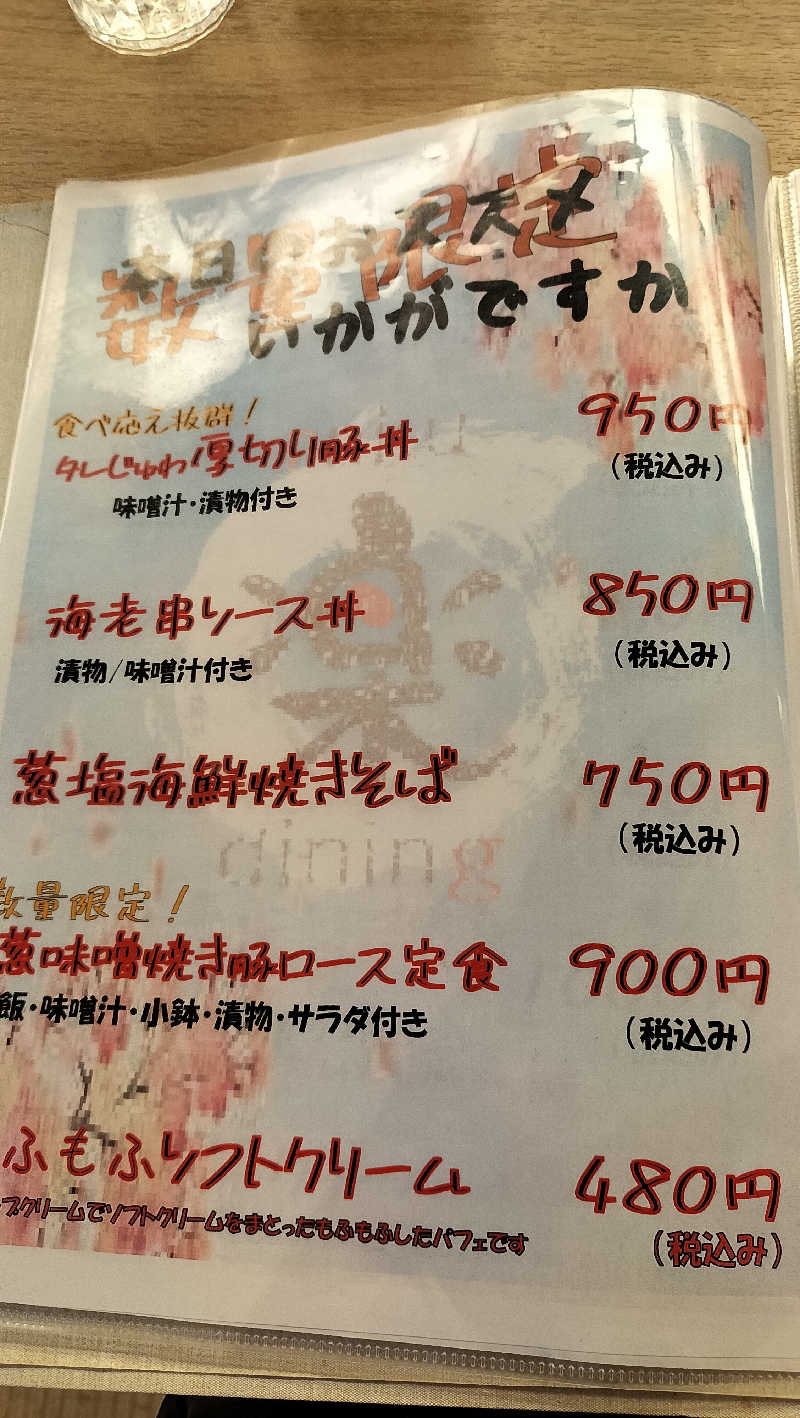 数量限定
本日のおススメ
いかがですか
食べ応え抜群！
タレじゅわ厚切り豚丼 950円
味噌汁・漬物付き (税込み)
海老串ソース丼 850円
漬物/味噌汁付き (税込み)
葱塩海鮮焼きそば 750円
(税込み)
数量限定！
葱味噌焼き豚ロース定食 900円
飯・味噌汁・小鉢・漬物・サラダ付き (税込み)
ふもふソフトクリーム 480円
プクリームでソフトクリームをまとったもふもふしたパフェです (税込み)
楽
dining